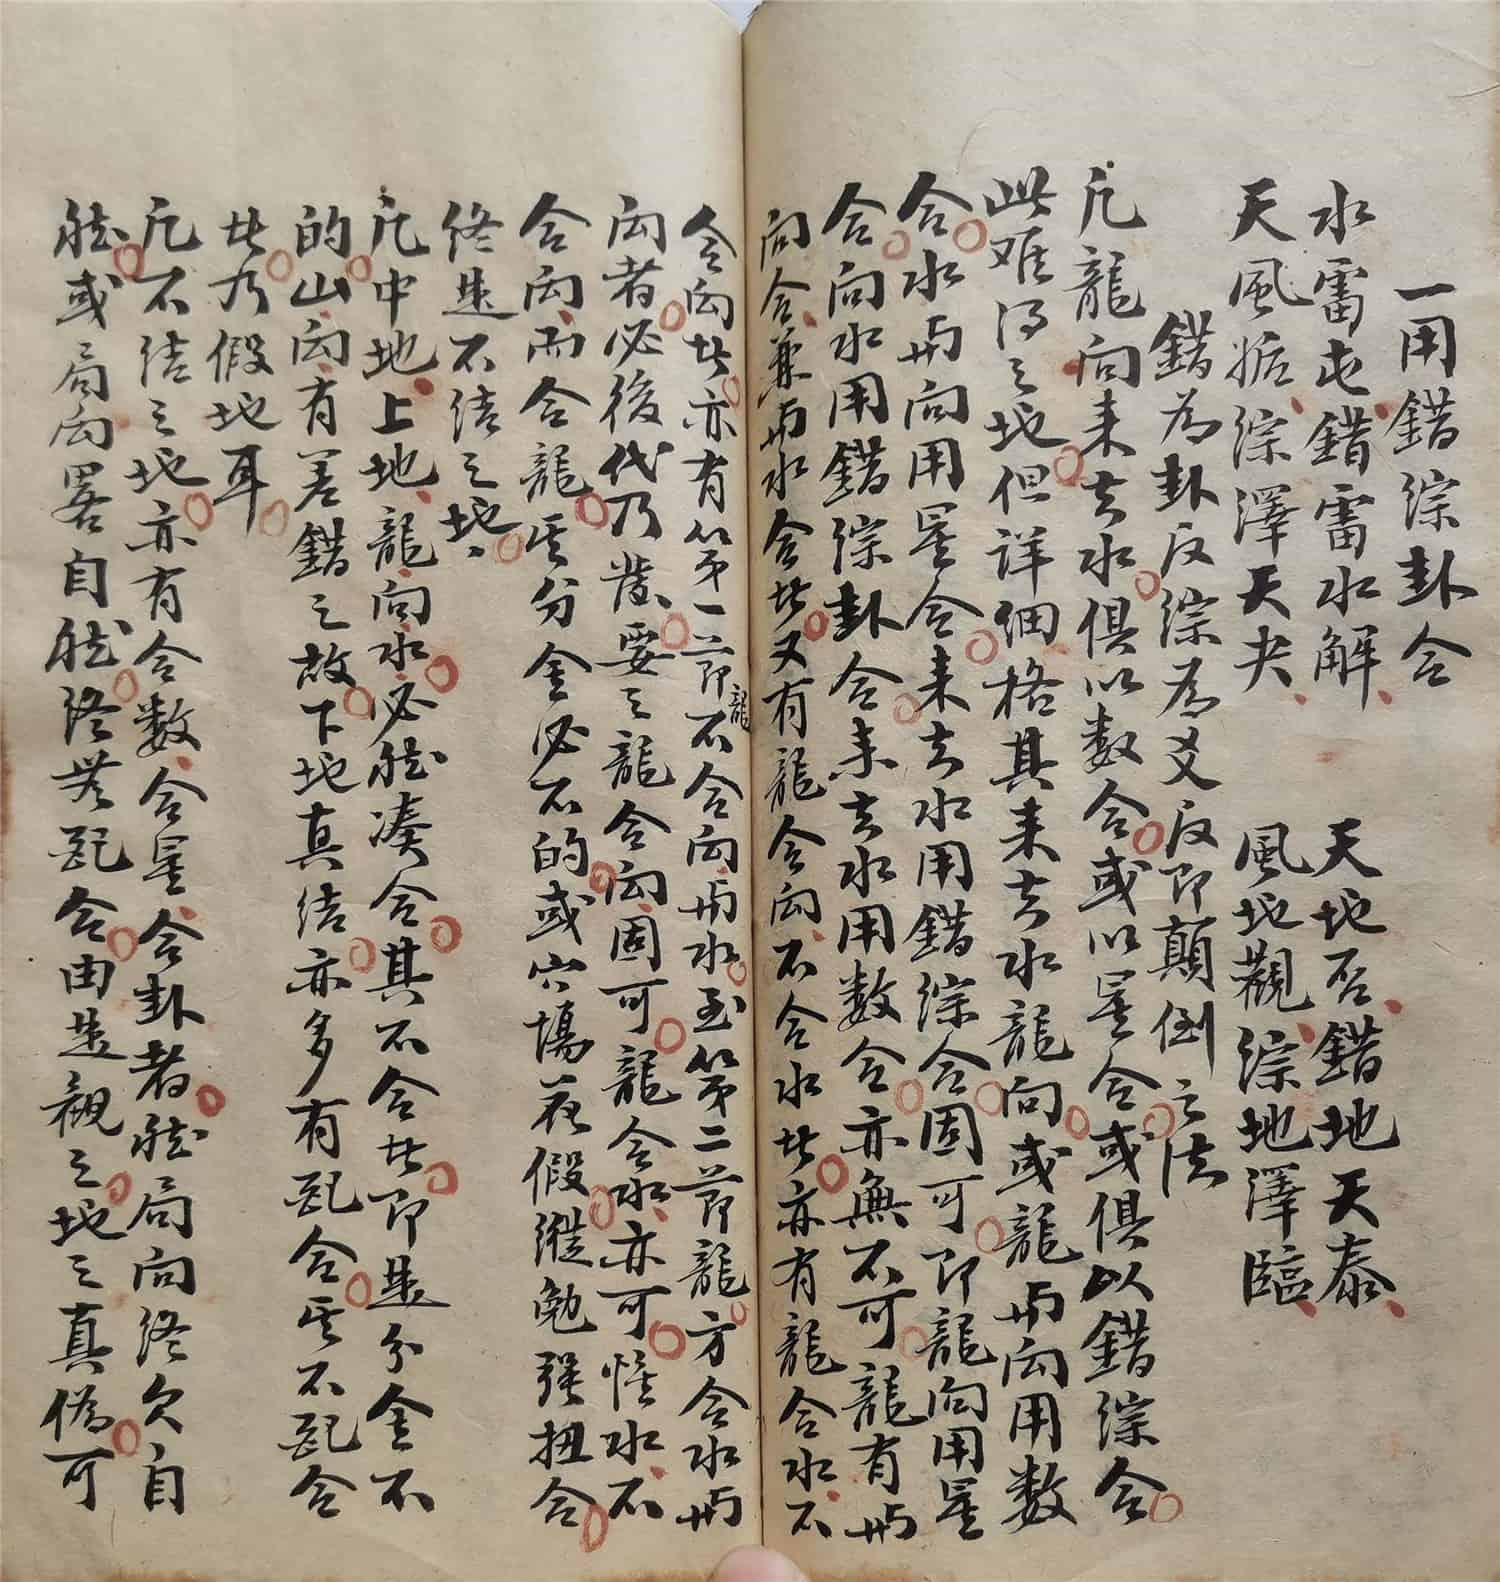 一用錯綜卦合
水雷屯錯雷水解 天地否錯地天泰
天風姤綜澤天夬 風地觀綜地澤臨
錯為卦反綜為爻反即顛倒之法
凡龍向来去水俱以數合或以星合或俱以錯綜合
此难得之地但詳细格其来去水龍向或龍与向用數
合水与向用星合来去水用錯綜合固可即龍向用星
合向水用錯綜卦合来去水用數合亦無不可龍有与
向合兼与水合者又有龍合向不合水者亦有龍合水不
合向者亦有第一節龍不合向与水至第二節龍方合水与
向者必後代乃發要之龍合向固可龍合水亦可惟水不
合向而合龍其分金必不的或穴場花假縱勉强扭合
终是不结之地
凡中地上地龍向水必能凑合其不合者即是分金不
的山向有差錯之故下地真结亦多有配合其不配合
者乃假地耳
凡不结之地亦有合數合星合卦者然局向终欠自
然或局向畧自然终无配合由是観之地之真偽可